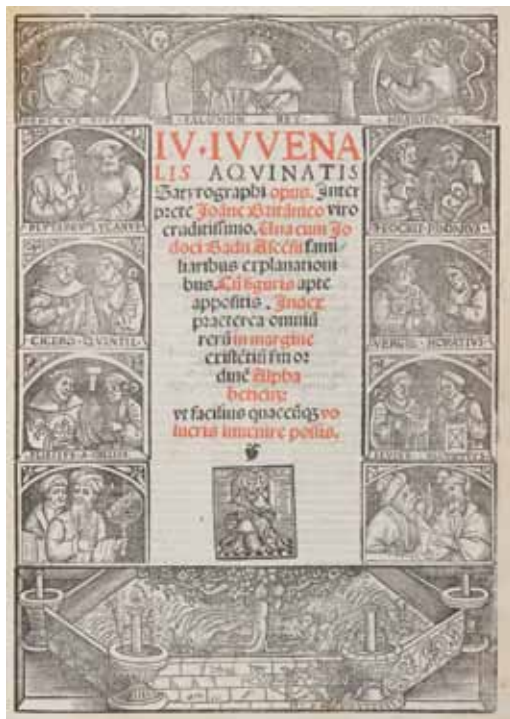 SALOMON REX
HESIODVS
IV·IVVENA
LIS AQVINATIS
Satyrographi opus. Inter
prete Joāne Britānico viro
eruditissimo. Una cum Jo
doci Badii Ascēsii fami/
liaribus explanationi
bus. Cū figuris apte
appositis. Index
praeterea omniū
rerū in margine
existētiū s̄m or
dinē Alpha
beticū:
vt facilius quaecūqꝫ vo
lueris inuenire possis.
PLVTARC· LVCANVS
CICERO·QVINTIL
VERGIL·HORATIVS